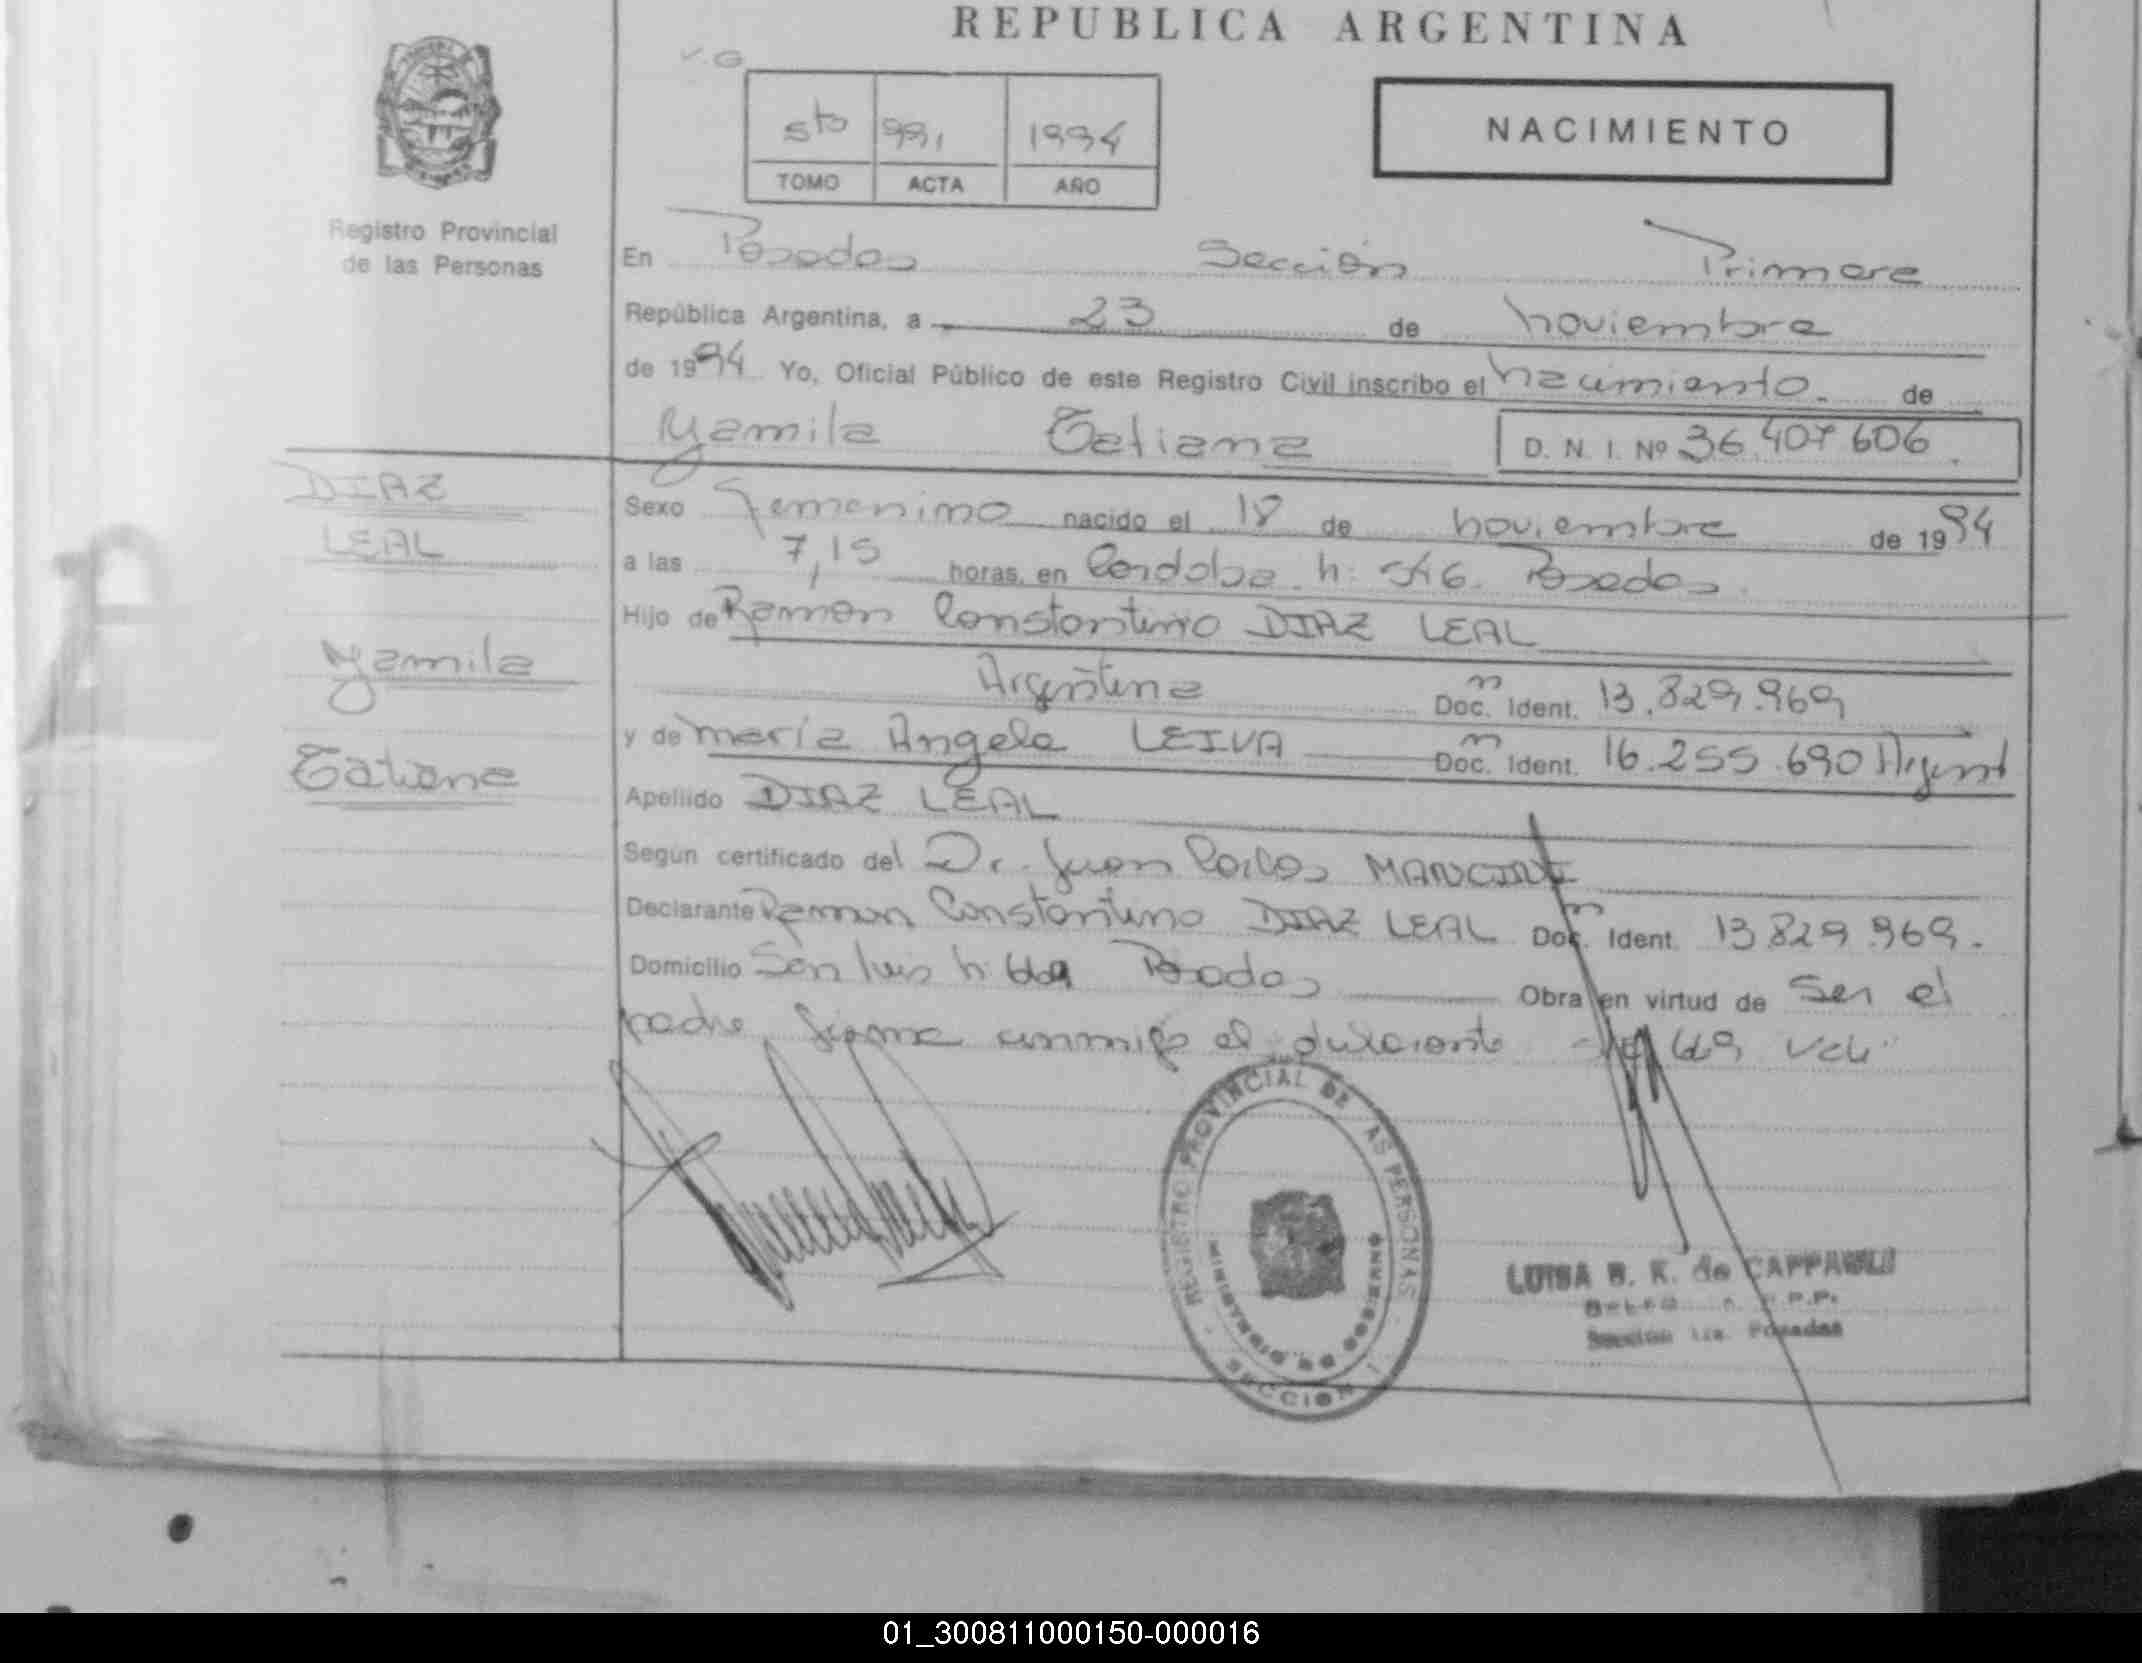 REPUBLICA ARGENTINA
V.G
5to 991 1994
TOMO ACTA AÑO
NACIMIENTO
Registro Provincial
de las Personas
En Posadas Sección Primera
República Argentina, a 23 de noviembre
de 1994 Yo, Oficial Público de este Registro Civil inscribo el nacimiento. de
Yamila Tatiana D. N. I. Nº 36.407 606.
DIAZ
LEAL
Yamila
Tatiana
Sexo Femenino nacido el 18 de noviembre de 1994
a las 7,15 horas, en Cordoba n: 546. Posadas.
Hijo de Ramon Constantino DIAZ LEAL
Argentina Doc. Ident. 13.829.969
y de María Angela LEIVA Doc. Ident. 16.255.690 Argent
Apellido DIAZ LEAL
Según certificado del Dr. Juan Carlos MANCINI
Declarante Ramon Constantino DIAZ LEAL Doc. Ident. 13 829.969.
Domicilio San Luis n: Posadas Obra en virtud de Ser el
padre firma conmigo el declarante 669 vale
REGISTRO PROVINCIAL DE LAS PERSONAS
MINISTERIO DE GOBIERNO
SECCION 1
LUISA B. K. de
Sección 1ra. Posadas
01_300811000150-000016